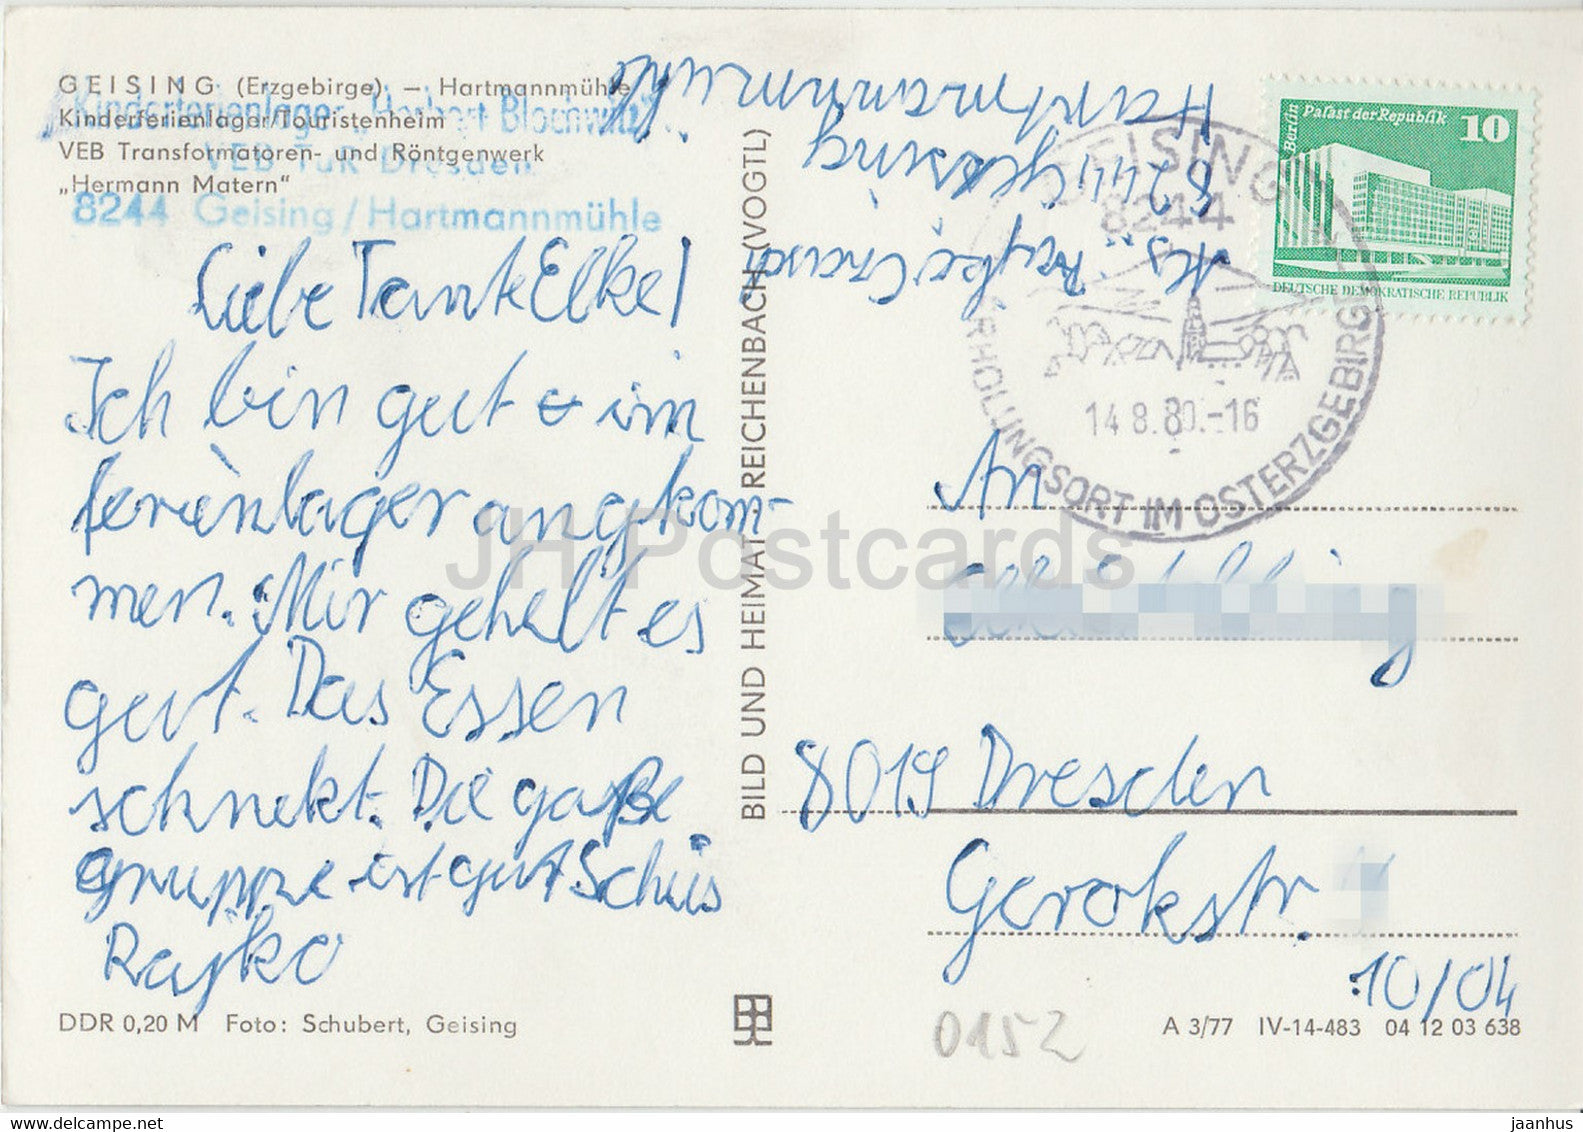 GEISING (Erzgebirge) — Hartmannmühle
Kinderferienlager/Touristenheim
VEB Transformatoren- und Röntgenwerk
„Hermann Matern“
Kinderferienlager „Herbert Blochwitz“
VEB TuR Dresden
8244 Geising/Hartmannmühle
Liebe Tante Elke!
Ich bin gut im
ferienlager angekom-
men. Mir gehelt es
gut. Das Essen
schnekt. Die gaße
gruppe ist gut Schüs
Rajko
DDR 0,20 M Foto: Schubert, Geising
BILD UND HEIMAT REICHENBACH (VOGTL)
Hartmannmühle
8244 Geising
Berlin Palast der Republik 10
DEUTSCHE DEMOKRATISCHE REPUBLIK
GEISING
8244
14.8.80.-16
ERHOLUNGSORT IM OSTERZGEBIRGE
An
8019 Dresden
Gerokstr.
10/04
0152
A 3/77 IV-14-483 04 12 03 638
JH Postcards
www.delcampe.net
jaanhus